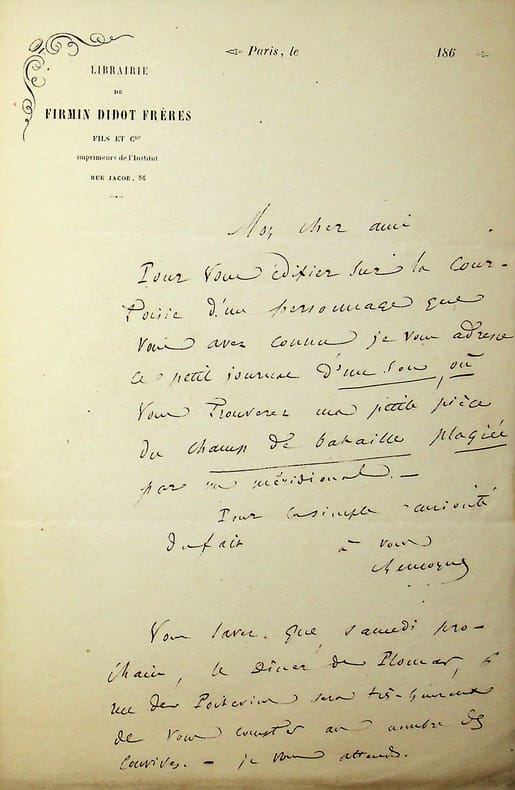 Paris, le 186
LIBRAIRIE
DE
FIRMIN DIDOT FRÈRES
FILS ET Cie
imprimeurs de l'Institut
RUE JACOB, 56
Mon cher ami
Pour vous édifier sur la Cour-
toisie d'un personnage que
vous avez connu je vous adresse
ce petit journal d'une sou, où
vous trouverez ma petite pièce
du champ de bataille plagiée
par un méridional. —
Pour la simple curiosité
du fait à vous
Vous savez que samedi pro-
chain, le Diner de
rue des Poitevins sera très
de vous compter au nombre des
convives. — je vous attends.